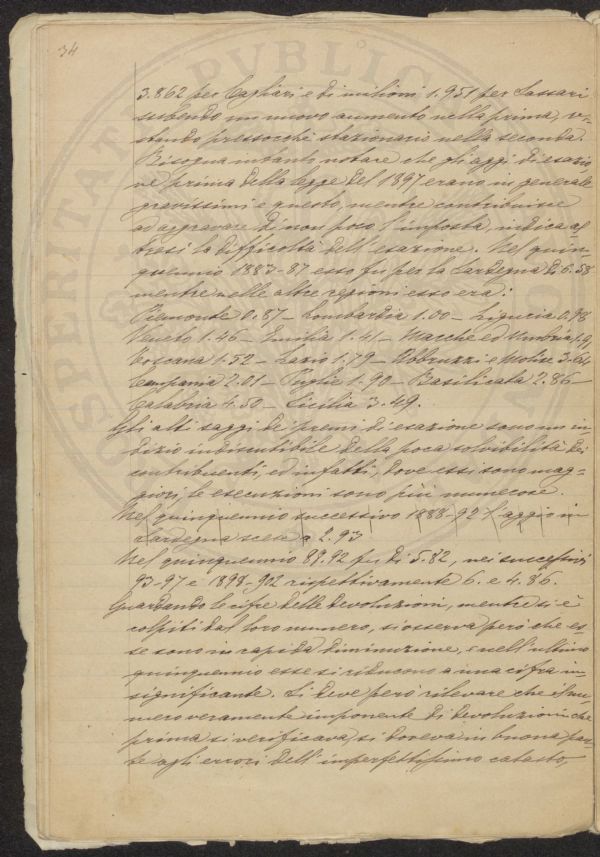 34
3.862 per Cagliari e di milioni 1.951 per Sassari
subendo un nuovo aumento nella prima, re-
stando pressocché stazionario nella seconda.
Bisogna intanto notare che gli aggi di esazio
ne prima della legge del 1897 erano in generale
gravissimi e questo, mentre contribuisce
ad aggravare di non poco l'imposta, indica al
tresì la difficoltà dell'esazione. Nel quin-
quennio 1883-87 esso fu per la Sardegna di 6.58
mentre nelle altre regioni esso era:
Piemonte 0.87 - Lombardia 1.00 - Liguria 0.98
Veneto 1.46 - Emilia 1.41 - Marche ed Umbria
Toscana 1.52 - Lazio 1.79 - Abbruzzi e Molise 3.64
Campania 2.01 - Puglie 1.90 - Basilicata 2.86 -
Calabria 4.50 - Sicilia 3.49.
Gli alti saggi de' premi di esazione sono un in-
dizio indiscutibile della poca solvibilità dei
contribuenti, ed infatti, dove essi sono mag-
giori, le esecuzioni sono più numerose.
Nel quinquennio successivo 1888-92 l'aggio in
Sardegna scese a 2.93
Nel quinquennio 89.92 fu di 5.82, nei successivi
93-97 e 1898-902 rispettivamente 6. e 4.86.
Guardando le cifre delle devoluzioni, mentre si è
colpiti dal loro numero, si osserva però che es-
se sono in rapida diminuzione, e nell'ultimo
quinquennio esse si riducono a una cifra in-
significante. Si deve però rilevare che il nu-
mero veramente imponente di devoluzioni che
prima si verificava, si doveva in buona par-
te agli errori dell'imperfettissimo catasto,